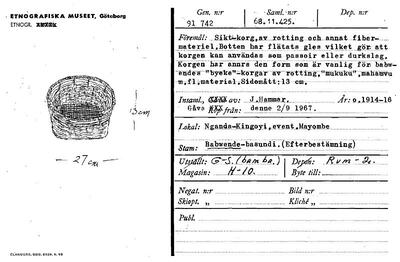 ETNOGRAFISKA MUSEET, Göteborg
ETNOGR.
13cm
— 27cm —
Gen. nr
91 742
Saml. nr
68.11.425.
Dep. nr
Föremål: Sikt-korg,av rotting och annat fiber-
material.Botten har flätats gles vilket gör att
korgen kan användas som passoir eller durkslag.
Korgen har annrs den form som är vanlig för babw-
endes "byeke"-korgar av rotting,"mukuku",mahamvu
m,fl,material.Sidemått:13 cm.
Insaml. av: J.Hammar.
År: o.1914-16
Gåva från: denne 2/9 1967.
Lokal: Nganda-Kingoyi,event,Mayombe
Stam: Babwende-basundi.(Efterbestämning)
Utställt: G-S.(bamba.)
Depon: Rum-2.
Magasin: H-10.
Byte till:
Negat. n:r
Bild n:r
Skiopt. „
Kliché „
Publ.